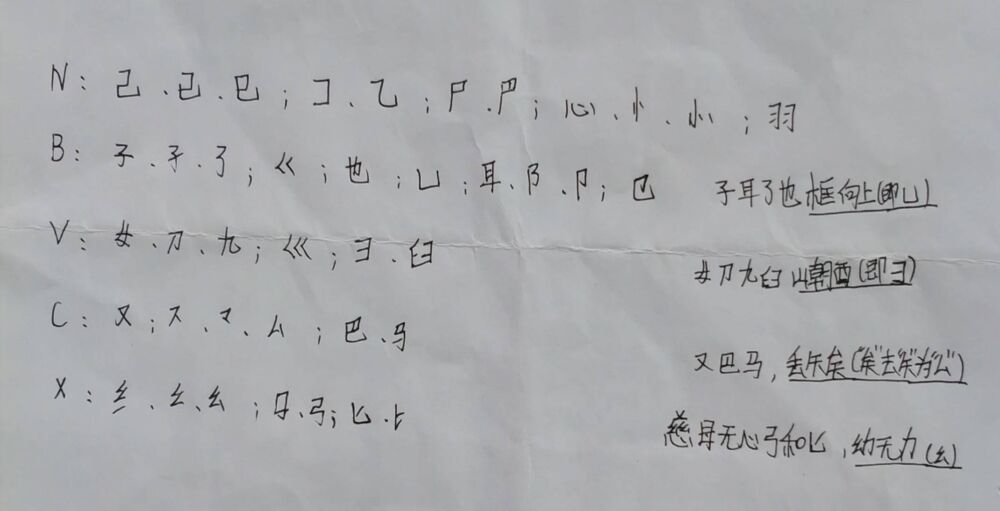 N: 己、已、巳；コ、乙；尸、严；心、忄、㣺；羽
B: 子、孑、了；巜；也；凵；耳、阝、卩；㔾 子耳了也框向上(即凵)
V: 女、刀、九；巛；彐、臼 女刀九臼山朝西(即彐)
C: 又；ス、マ、厶；巴、马 又巴马，丢矢矣("矣"去"矢"为"厶")
X: 纟、幺、幺；母、弓；匕、⺊ 慈母无心弓和匕，幼无力(幺)